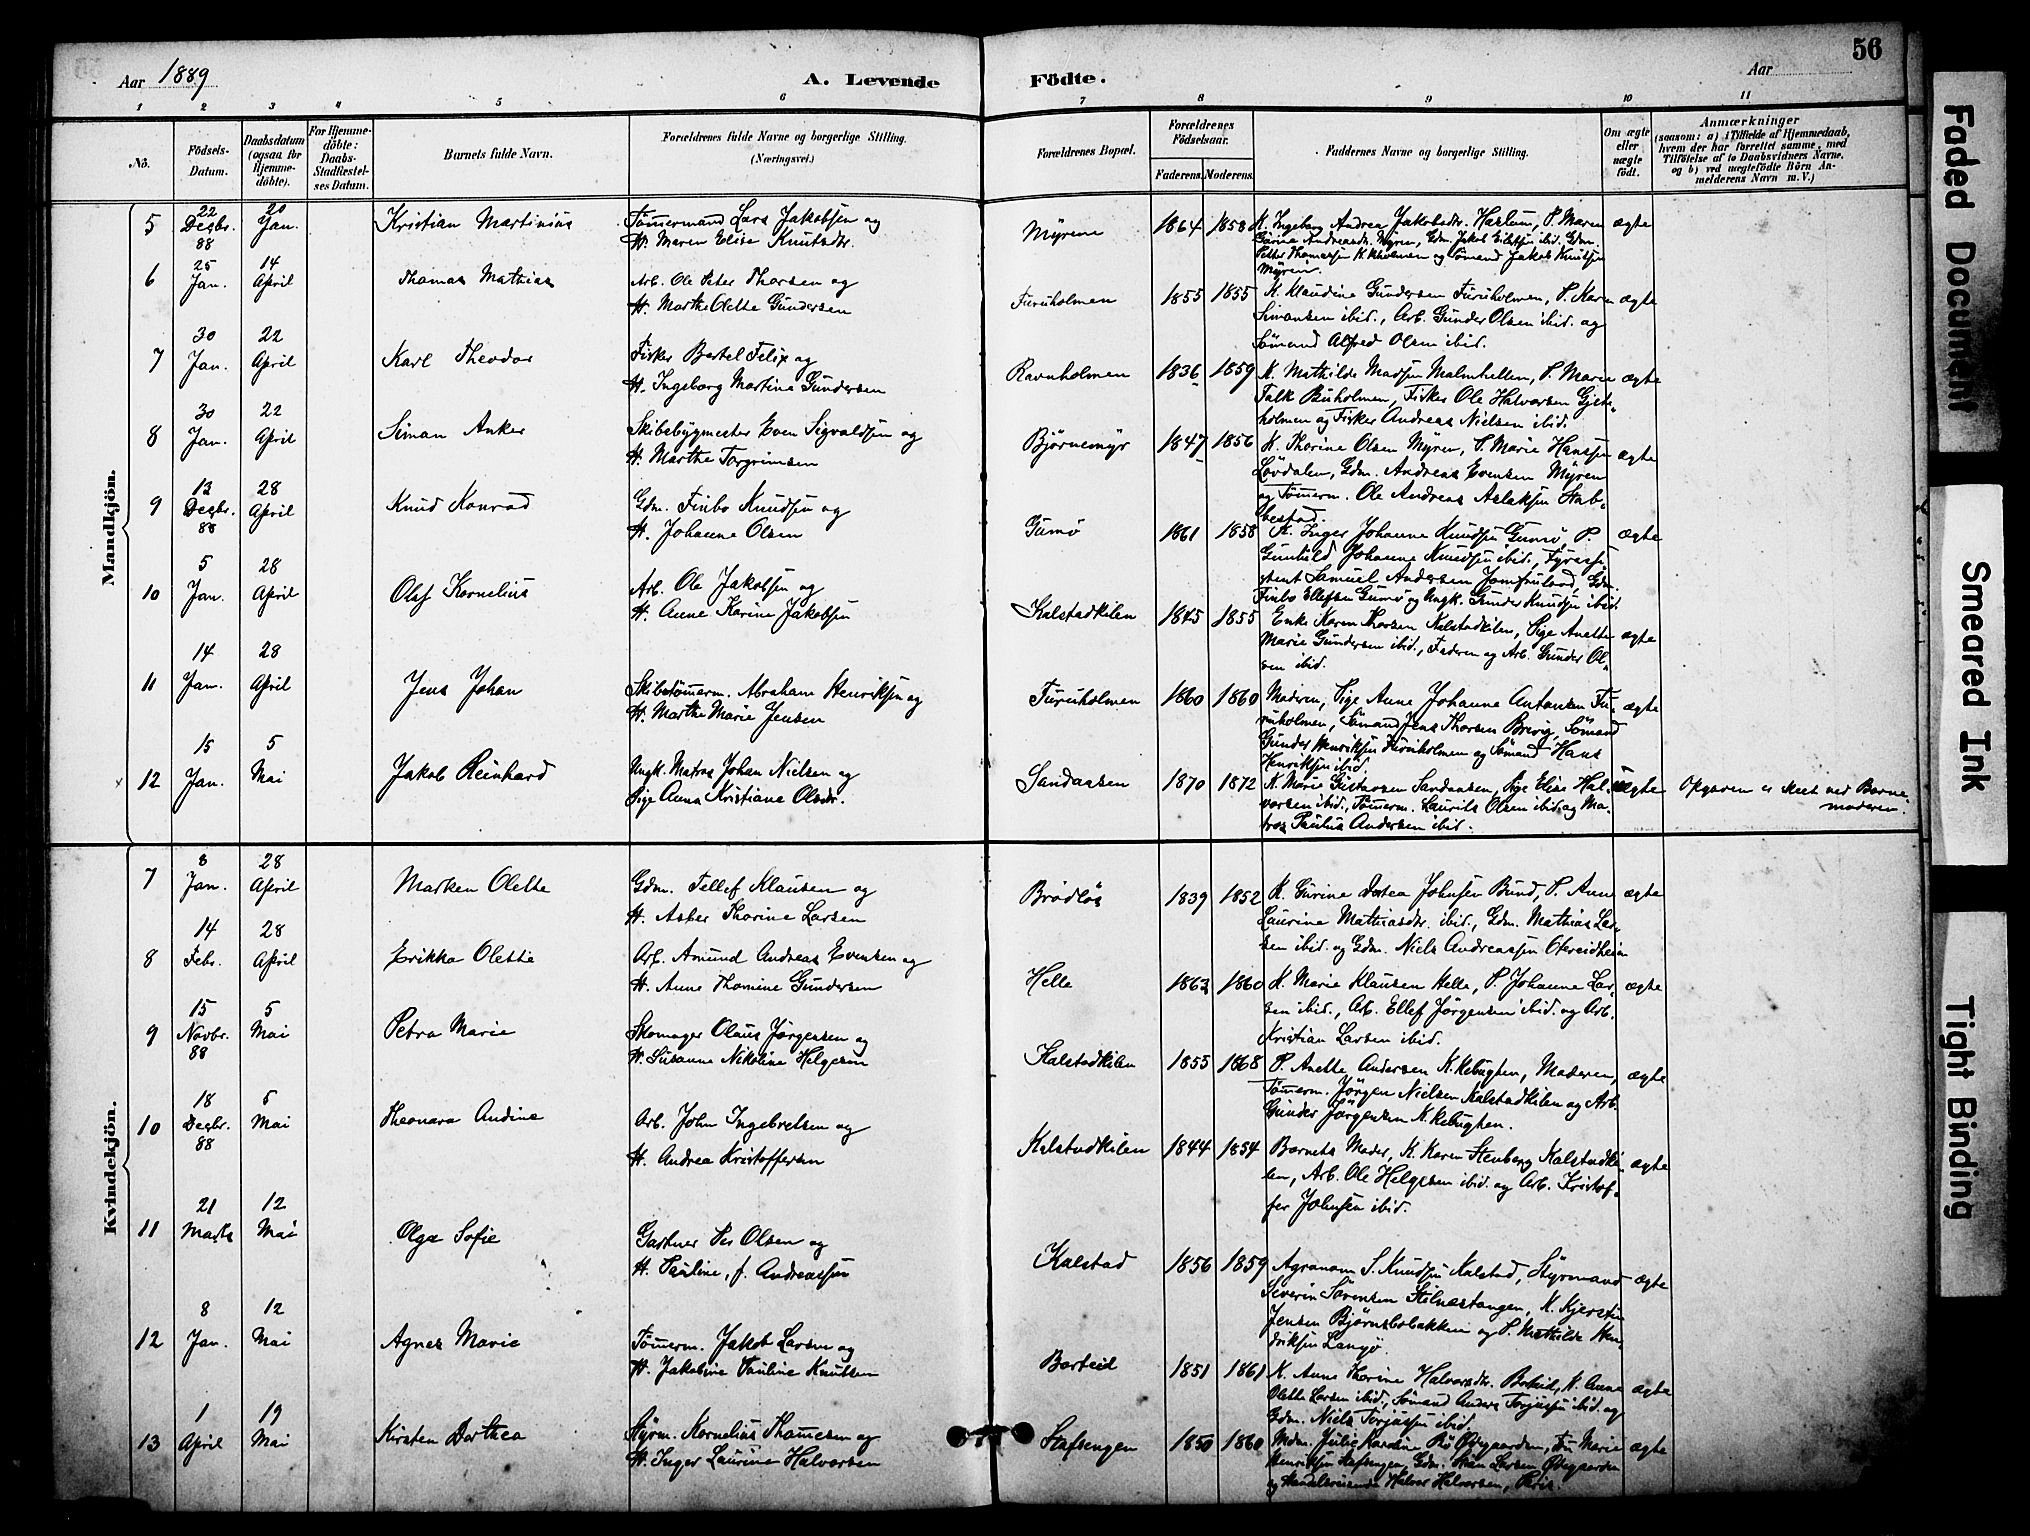 56
Aar 1889
A. Levende
Födte.
Aar
1 2 3 4 5 6 7 8 9 10 11
No.
Födsels-Datum.
Daabsdatum (ogsaa for Hjemme-döbte).
For Hjemme-döbte: Daabs-Stadfæstelses Datum.
Barnets fulde Navn.
Forældrenes fulde Navne og borgerlige Stilling.
(Næringsvei.)
Forældrenes Bopæl.
Forældrenes Födselsaar.
Faderens. Moderens.
Faddernes Navne og borgerlige Stilling.
Om ægte eller uægte födt.
Anmærkninger
(saasom: a) i Tilfælde af Hjemmedaab,
hvem der har forrettet samme, med
Tilföielse af to Daabsvidners Navne,
og b) ved uægtefödte Börn An-
melderens Navn m. V.)
Mandkjön.
5 22 Decbr. 88 20 Jan. Kristian Martinius Tömermand Lars Jakobsen og
H. Maren Elise Knutsdr. Myrene 1864 1858 K. Ingeborg Andrea Jakobsdr. Haslum, P. Maren ægte
Myren, Gdm. Jakob ibid. Gdm.
Petter Thomassen K. Kholmen og Sömand Jakob Knutsen
Myren.
6 25 Jan. 14 April Thomas Mathias Arb. Ole Peter Thorsen og
H. Marthe Olette Gundersen Furuholmen 1855 1855 K. Klaudine Gundersen Furuholmen, P. Karen ægte
Simonsen ibid., Arb. Gunder Olsen ibid. og
Sömand Alfred Olsen ibid.
7 30 Jan. 22 April Karl Theodor Fisker Bertel Felix og
H. Ingeborg Martine Gundersen Ravnholmen 1836 1859 K. Mathilde Madsen Malmhellen, P. Marie ægte
Falk Buholmen, Fisker Ole Halvorsen Gjete-
holmen og Fisker Andreas Nielsen ibid.
8 30 Jan. 22 April Simon Anker Skibsbygmester Even Sigvaldsen og
H. Marthe Torgrimsen Bjørnemyr 1847 1856 K. Thorine Olsen Myren, P. Marie Hanssen ægte
Lövdalen, Gdm. Andreas Evensen Myren
og Tömerm. Ole Andreas Aslaksen Stab-
bestad.
9 13 Decbr. 88 28 April Knud Konrad Gdm. Finbo Knudsen og
H. Johanne Olsen Gumø 1861 1858 K. Inger Johanne Knudsen Gumø, P. ægte
Gunhild Johanne Knudsen ibid., Fyrassi-
stent Samuel Andersen Jomfruland, Gdm.
Finbo Ellefsen Gumø og Ungk. Gunder Knudsen ibid.
10 5 Jan. 28 April Olaf Kornelius Arb. Ole Jakobsen og
H. Anne Karine Jakobsen Kalstadkilen 1845 1855 Enke Karen Thorsen Kalstadkilen, Pige Anette ægte
Marie Gundersen ibid., Faderen og Arb. Gunder Ol-
sen ibid.
11 14 Jan. 28 April Jens Johan Skibstömerm. Abraham Henriksen og
H. Marthe Marie Jensen Furuholmen 1860 1860 Moderen, Pige Anne Johanne Antonsen Fu- ægte
ruholmen, Sömand Jens Thorsen Brevig, Sömand
Gunder Henriksen Furuholmen og Sömand Hans
Henriksen ibid.
12 15 Jan. 5 Mai Jakob Reinhard Ungk. Matros Johan Nielsen og
Pige Anna Kristiane Olsdr. Sandaasen 1870 1872 K. Marie Gustavsen Sandaasen, Pige Elise Hal- uægte
vorsen ibid., Tömerm. Laurits Olsen ibid. og Ma-
tros Paulus Andersen ibid. Opgaven er skeet ved Barne-
moderen.
Kvindekjön.
7 8 Jan. 28 April Marken Olette Gdm. Tellef Klausen og
H. Asber Thorine Larsen Brödlös 1839 1852 K. Gurine Dortea Johnsen Bund, P. Anne ægte
Laurine Mathiasdr. ibid., Gdm. Mathias Lar-
sen ibid. og Gdm. Niels Andreassen
8 14 Febr. 28 April Erikka Olette Arb. Amund Andreas Evensen og
H. Anne Thomine Gundersen Helle 1863 1860 K. Marie Klausen Helle, P. Johanne Lar- ægte
sen ibid., Arb. Ellef Jørgensen ibid. og Arb.
Kristian Larsen ibid.
9 15 Novbr. 88 5 Mai Petra Marie Skomager Olaus Jørgensen og
H. Susanne Nikoline Helgesen Kalstadkilen 1855 1868 P. Anette Andersen K. Kebugten, Moderen, ægte
Tömerm. Jørgen Nielsen Kalstadkilen og Arb.
Gunder Jørgensen K. Kebugten.
10 18 Decbr. 88 5 Mai Theonora Andine Arb. John Ingebretsen og
H. Andrea Kristoffersen Kalstadkilen 1844 1854 Barnets Moder, K. Karen Stenberg Kalstadki- ægte
len, Arb. Ole Helgesen ibid. og Arb. Kristof-
fer Johnsen ibid.
11 21 Marts 12 Mai Olga Sofie Gartner Per Olsen og
H. Pauline, f. Andreassen Kalstad 1856 1859 Agronom S. Knudsen Kalstad, Styrmand ægte
Severin Sørensen Stilnestangen, K. Kjerstin
Jensen Bjørnsbobakken og P. Mathilde Hen-
driksen Langø.
12 8 Jan. 12 Mai Agnes Marie Tömerm. Jakob Larsen og
H. Jakobine Pauline Knutsen Barteid 1851 1861 K. Anne Thorine Halvorsdr. Barteid, K. Anne ægte
Olette Larsen ibid., Sömand Anders Torjussen ibid. og
Gdm. Niels Torjussen ibid.
13 1 April 19 Mai Kirsten Dorthea Styrm. Kornelius Thomesen og
H. Inger Laurine Halvorsen Stafsengen 1850 1860 Mdm. Julie Karoline Rö Ødegaarden, Fru Marie ægte
Henriksen Stafsengen, Gdm. Larsen Ødegaarden
og Handelsreisende Halvor Halvorsen,
Faded Document
Smeared Ink
Tight Binding